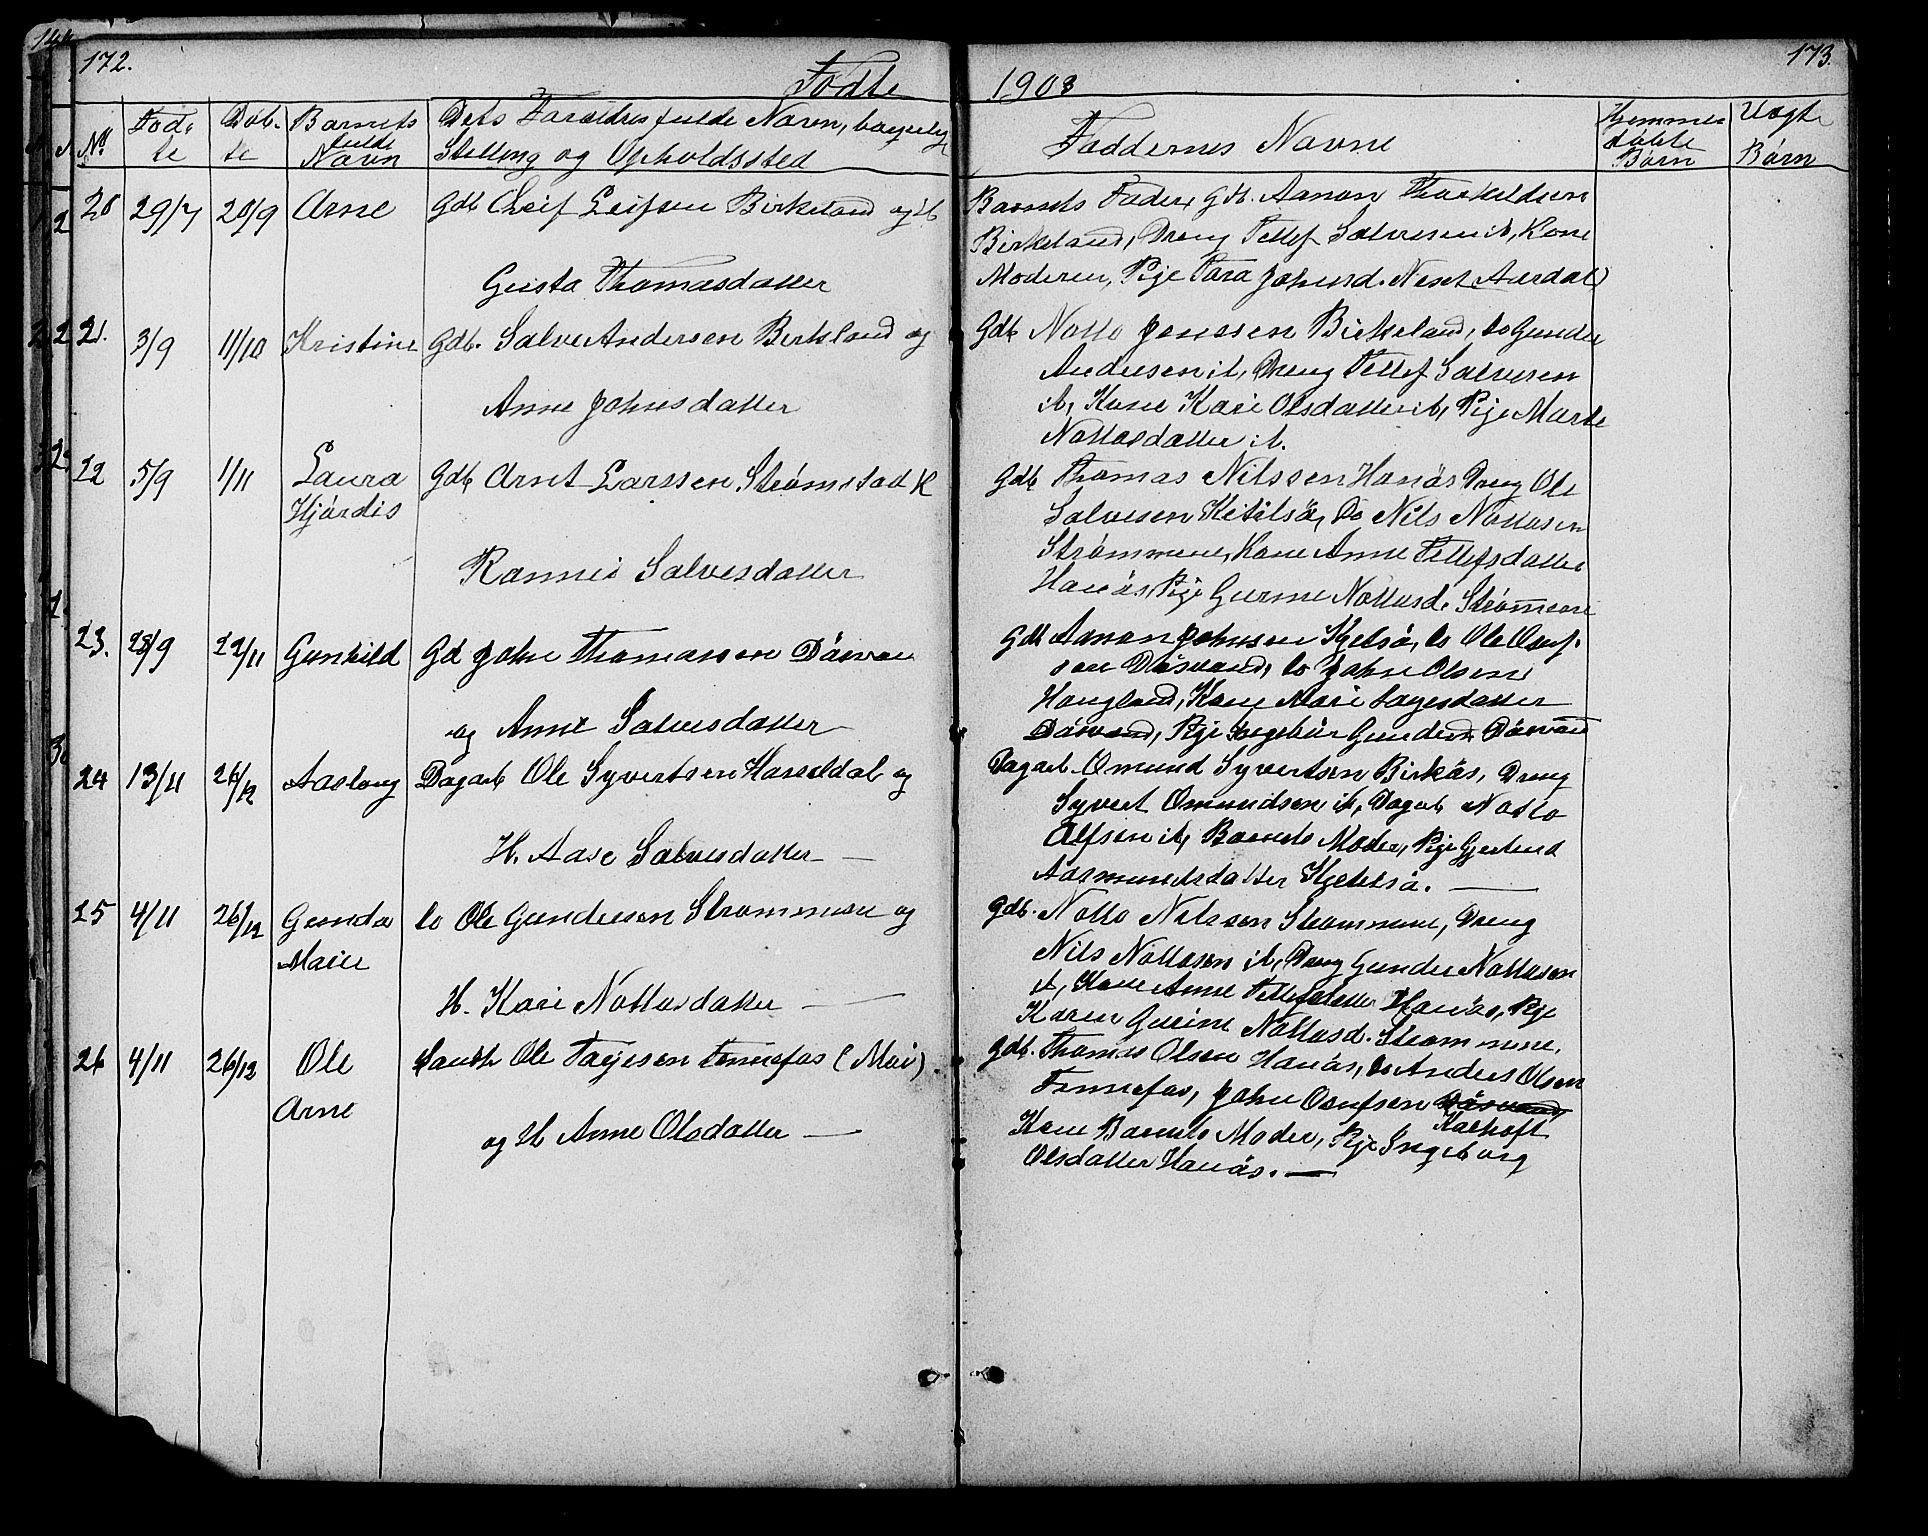 172.
Fødte
Nº
Fød-
te
Døb-
te
Barnets
fulde
Navn
Dets Forældres fulde Navn, borgerlig
Stilling og Opholdssted
20 29/7 20/9 Arne Gdb Leif Leifsen Birkeland og H
Gusta Thomasdatter
21. 3/9 11/10 Kristine Gdb. Salve Andersen Birkeland og
Anne Johnsdatter
22 5/9 1/11 Laura Gdb Arnt Larssen Strømstad H
Hjørdis
Salvesdatter
23. 28/9 22/11 Gunhild Gd John Thomassen Dåsvan
og Anne Salvesdatter
24 13/11 26/12 Aasloug Dagarb Ole Syvertsen Hasseldal og
H. Aase Salvesdatter —
25 4/11 26/12 Gunda do Ole Gundersen Strømmene og
Marie
H. Kari Nottosdatter —
26 4/11 26/12 Ole Ole Tagesen Fennefos (Moi).
Arne
og H Anne Olsdatter —
173.
1908
Faddernes Navne
Hjemme
døbte
Børn
Uægte
Børn
Barnets Fader, Gdb. Aanon Thorkildsen
Birkeland, Dreng Tellef Salvesen ib, Kone
Moderen, Pige Tara Johnsd. Neset Aardal
Gdb Notto Jenssen Birkeland, do Gunder
Andersen ib, Dreng Tellef Salvesen
ib, Kone Kari Olsdatter ib, Pige Marte
Nottosdatter ib.
Gdb Thomas Nilssen Hanås Dreng Ole
Salvesen Ketilså, Do Nils Nottosen
Strømmene, Kone Anne Tellefsdatter
Hanås, Pige Gurine Nottosd. Strømene
Gdb Aanon Johnsen Kjetså, do Ole Osuf-
sen Dåsvand, do John Olsen
Haugland, Kone Mari Tagesdatter
Dåsvand, Pige Ingebår Gundersd. Dåsvan
Dagarb. Omund Syvertsen Birkås, Dreng
Syvert Omundsen ib, Dagarb Notto
Alfsen ib, Barnets Moder, Pige Gjertrud
Aasmundsdatter Kjetelså. —
Gdb. Notto Nilssen Strømmene, Dreng
Nils Nottosen ib, Dreng Gunder Nottosen
ib, Kone Anne Tellefsdatter Hanås, Pige
Karen Gurine Nottosd. Strømmene.
Gdb. Thomas Olsen Hanås, do Anders Olsen
Fennefos, John Osufsen Dåsvand
Kalhoft
Kone Barnets Moder, Pige Ingeborg
Olsdatter Hanås. —